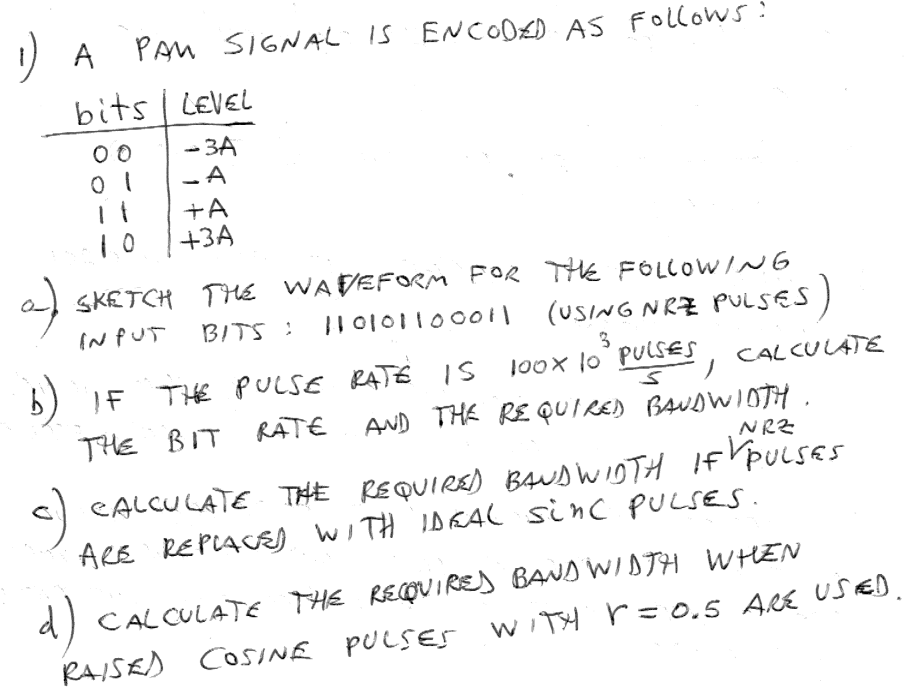 1) A PAM SIGNAL IS ENCODED AS FOLLOWS:
bits | LEVEL
00 | -3A
01 | -A
11 | +A
10 | +3A
a) SKETCH THE WAVEFORM FOR THE FOLLOWING
INPUT BITS: 110101100011 (USING NRZ PULSES)
b) IF THE PULSE RATE IS 100×10³ PULSES/S, CALCULATE
THE BIT RATE AND THE REQUIRED BANDWIDTH.
c) CALCULATE THE REQUIRED BANDWIDTH IF NRZ PULSES
ARE REPLACED WITH IDEAL sinc PULSES.
d) CALCULATE THE REQUIRED BANDWIDTH WHEN
RAISED COSINE PULSES WITH r = 0.5 ARE USED.